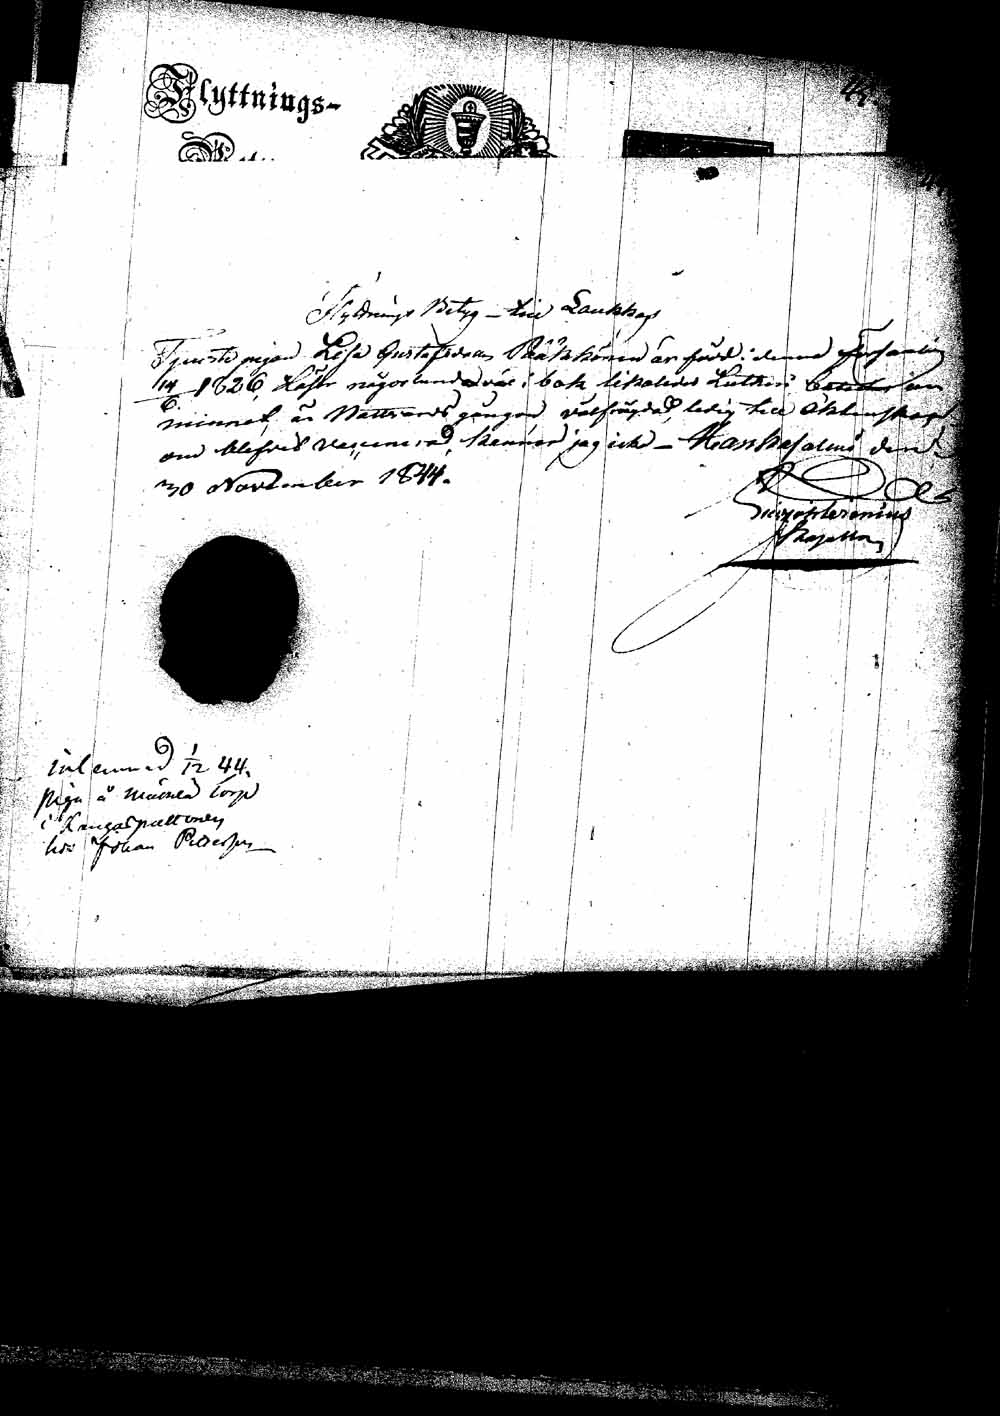 44.
Flyttnings-
Flyttnings Betyg – till Laukkas
Tjenste pigan Lisa Gustafsdotter Pääkkönen är född i denna församling
14/6 1826, Läser någorlunda väl i bok likaledes Lutheri
minnet, är Nattvards gången välfrägdad, ledig till Äktenskap
om blifvit vaccinerad, känner jag icke – Hankasalmi den
30 November 1844.
inlemnad 1/12 44.
piga å torp
i Kangas
hos Johan Petersson